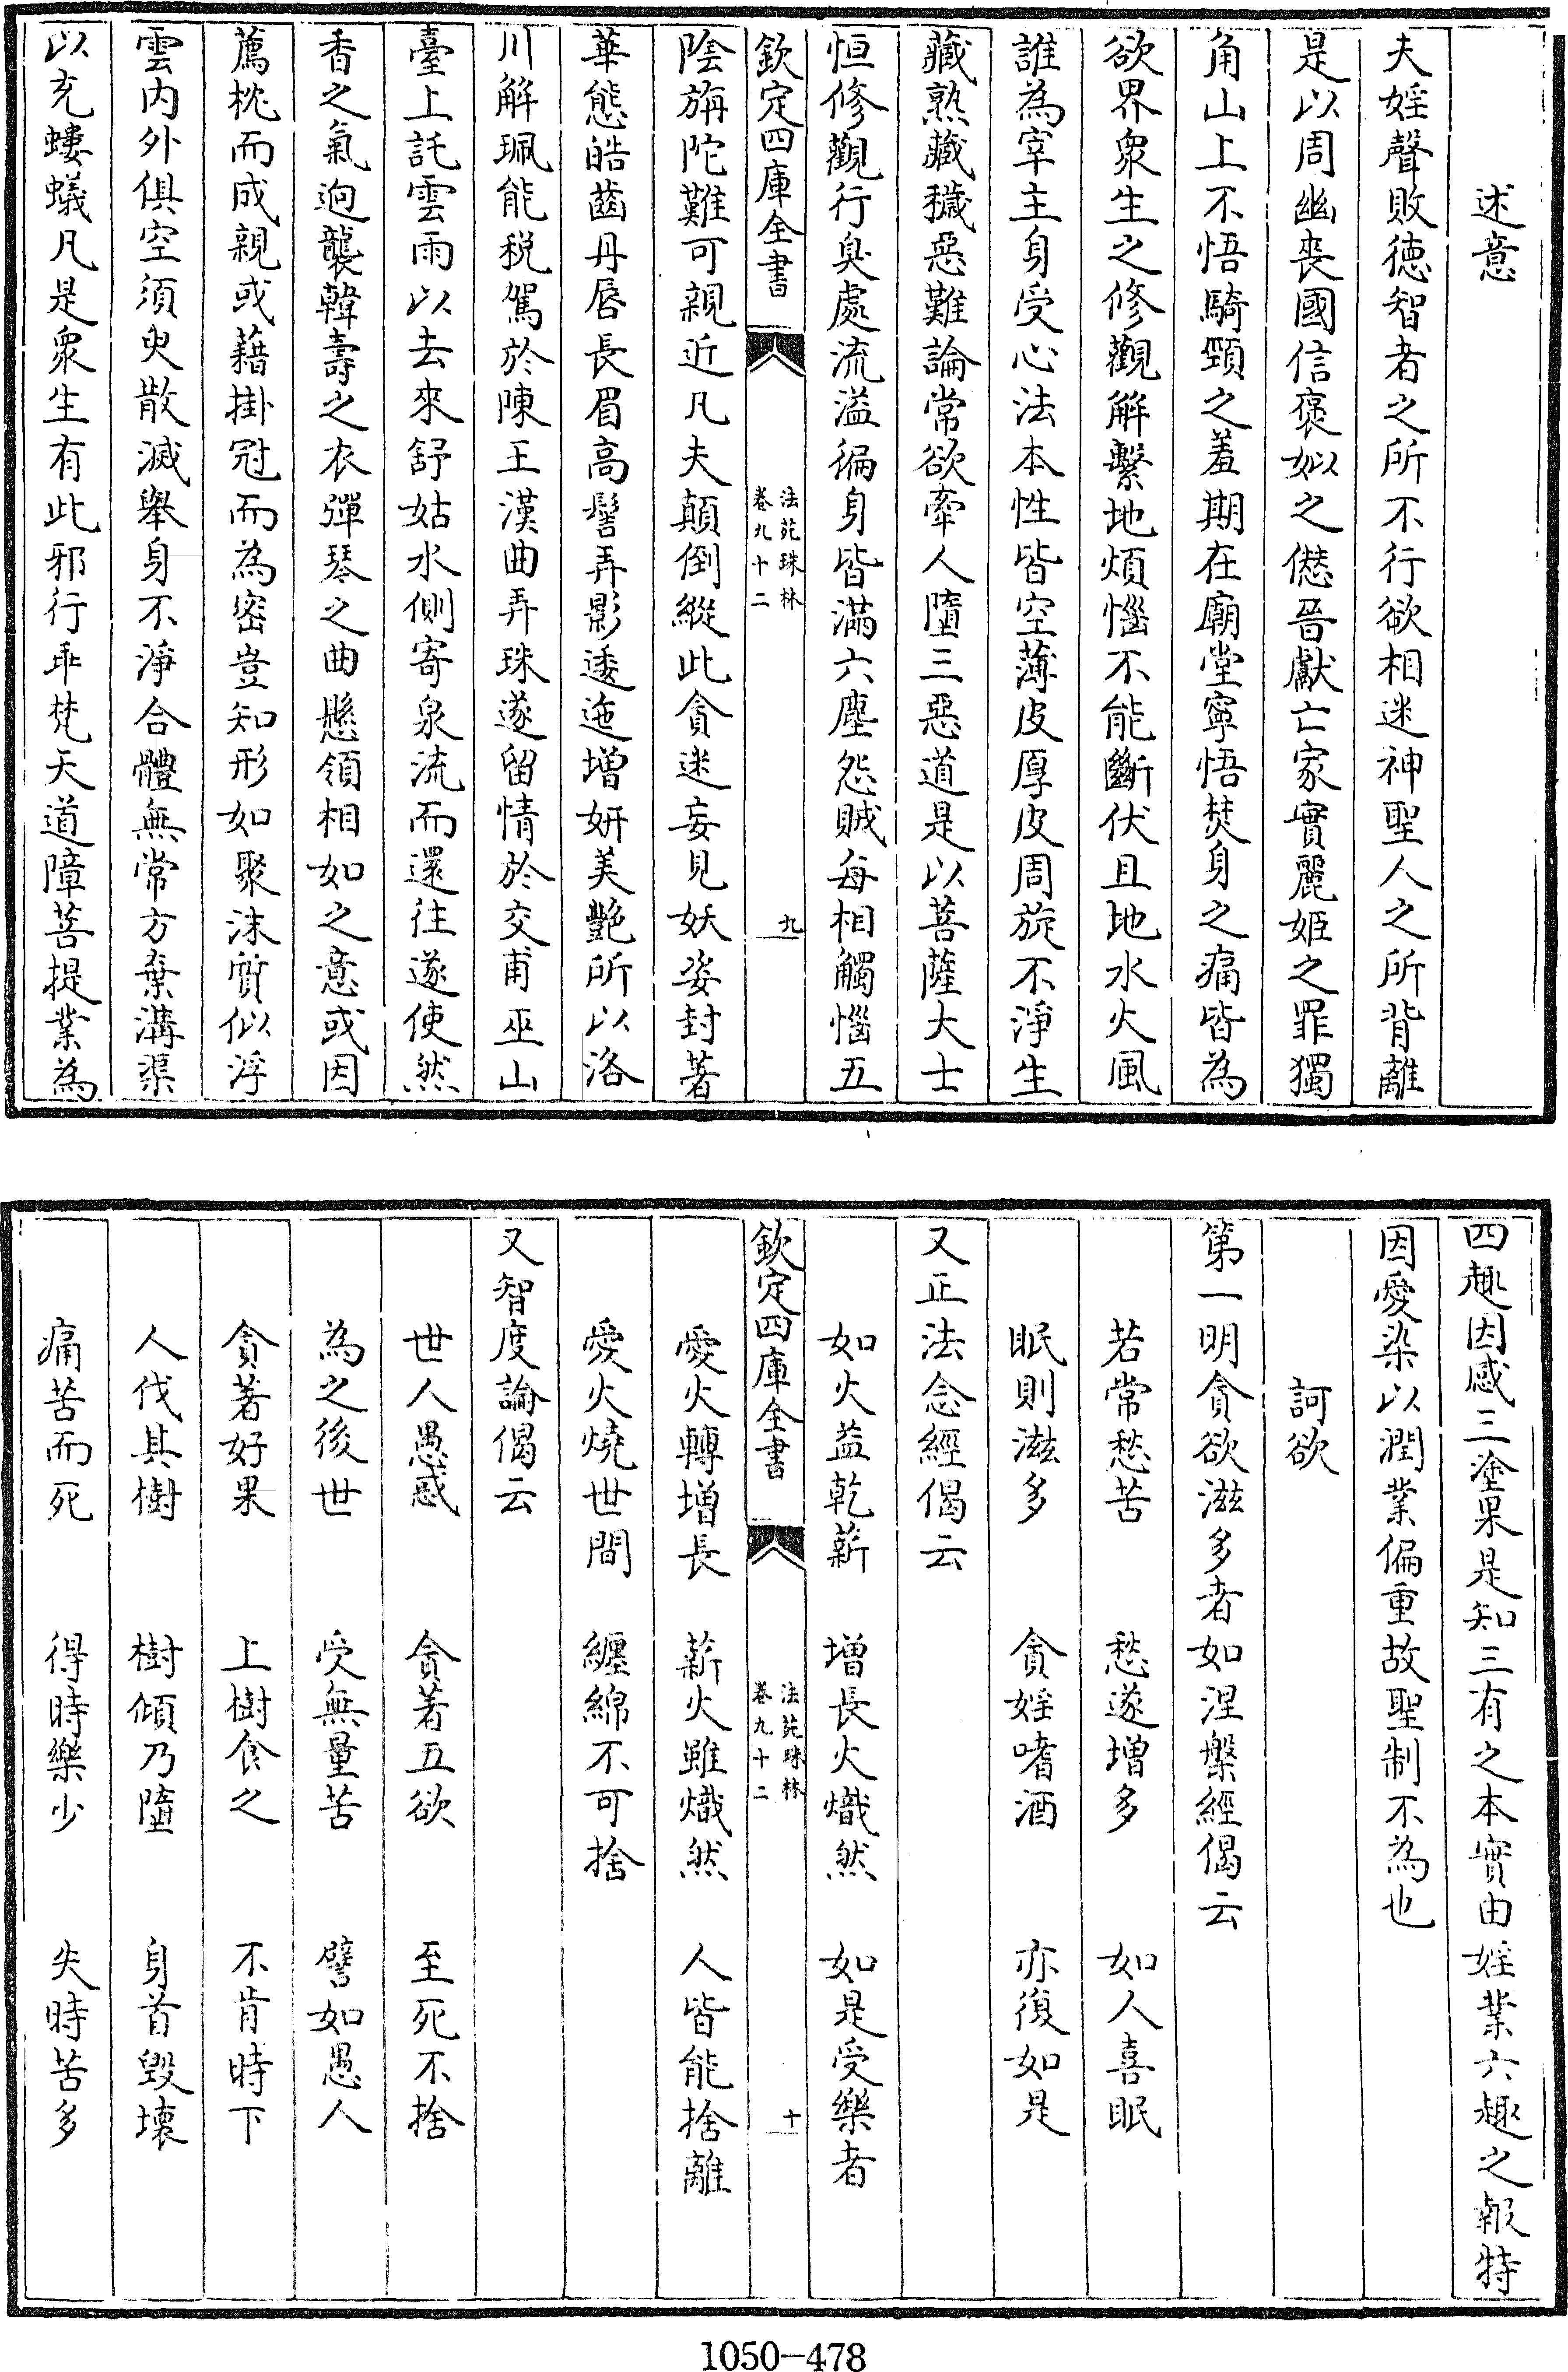 述意
夫婬聲敗徳智者之所不行欲相迷神聖人之所背離
是以周幽喪國信褒姒之僽晉獻亡家實麗姬之罪獨
角山上不悟騎頸之羞期在廟堂寧悟焚身之痛皆為
欲界衆生之修觀解繫地煩惱不能斷伏且地水火風
誰為宰主身受心法本性皆空薄皮厚皮周旋不淨生
藏熟藏穢惡難論常欲牽人墮三惡道是以菩薩大士
恒修觀行臭處流溢徧身皆滿六塵怨賊每相觸惱五
欽定四庫全書
法苑珠林
卷九十二
九
陰旃陀難可親近凡夫顛倒縱此貪迷妄見妖姿封著
華態皓齒丹唇長眉高髻弄影逶迤增妍美艷所以洛
川解珮能税駕於陳王漢曲弄珠遂留情於交甫巫山
臺上託雲雨以去來舒姑水側寄泉流而還往遂使然
香之氣迥襲韓壽之衣彈琴之曲懸領相如之意或因
薦枕而成親或藉掛冠而為密豈知形如聚沫質似浮
雲内外俱空須臾散滅舉身不淨合體無常方棄溝渠
以充螻蟻凡是衆生有此邪行乖梵天道障菩提業為
四趣因感三塗果是知三有之本實由婬業六趣之報特
因愛染以潤業偏重故聖制不為也
訶欲
第一明貪欲滋多者如涅槃經偈云
若常愁苦 愁遂增多 如人喜眠
眠則滋多 貪婬嗜酒 亦復如是
又正法念經偈云
如火益乾薪 增長火熾然 如是受樂者
欽定四庫全書
法苑珠林
卷九十二
十
愛火轉增長 薪火雖熾然 人皆能捨離
愛火燒世間 纏綿不可捨
又智度論偈云
世人愚惑 貪著五欲 至死不捨
為之後世 受無量苦 譬如愚人
貪著好果 上樹食之 不肯時下
人伐其樹 樹傾乃墮 身首毁壊
痛苦而死 得時樂少 失時苦多
1050-478